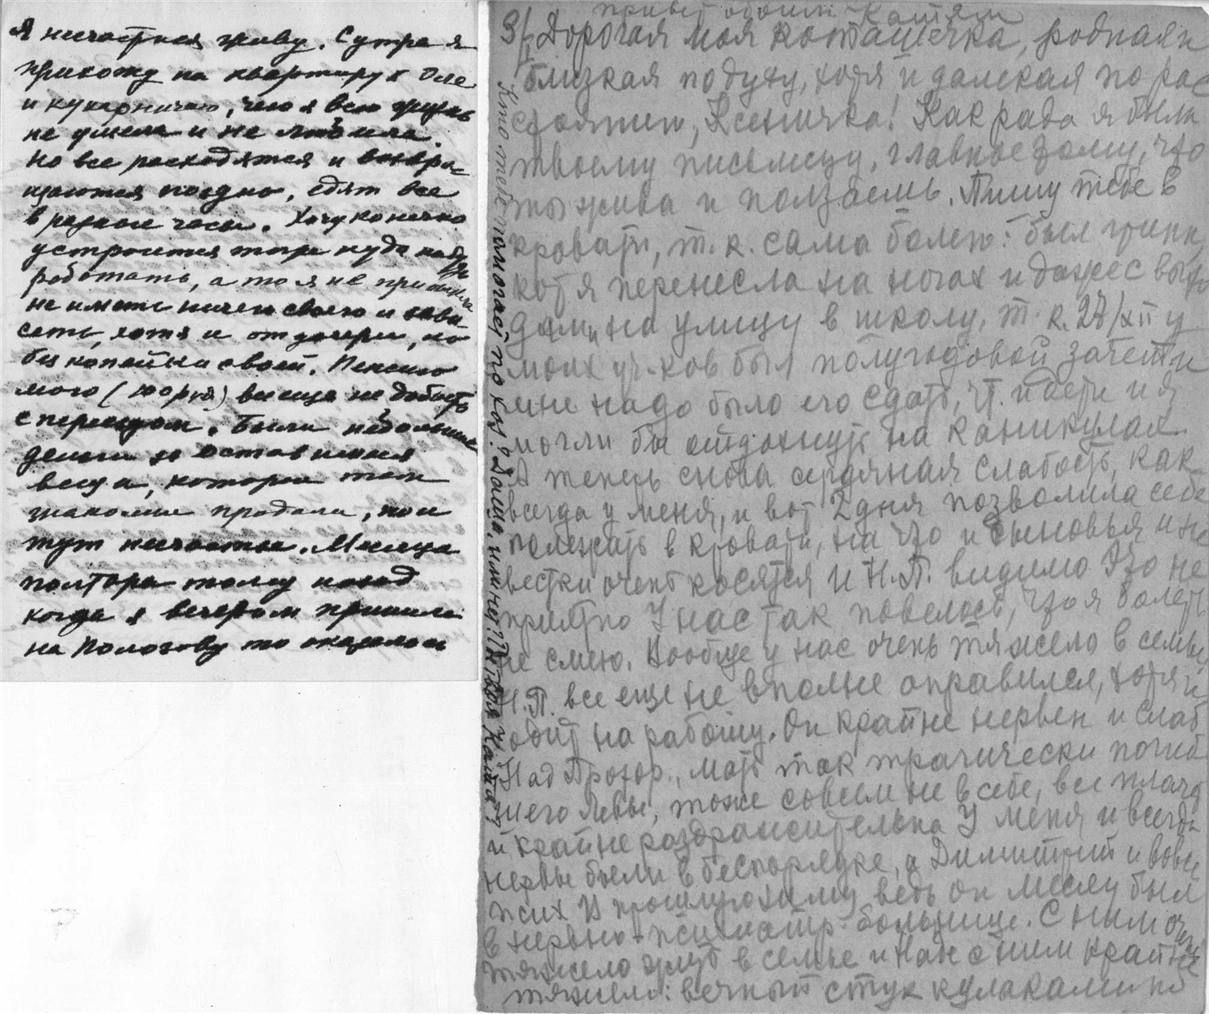 Я несчастная живу. С утра я
прихожу на квартиру к Оле
и кухарничаю, чего я всю жизнь
не умела и не любила.
Но все расходятся и возвра-
щаются поздно, едят все
в разные часы. Хочу конечно
устроиться тоже куда нибудь
работать, а то я не привыкла
не иметь ничего своего и зави-
сеть, хотя и от дочери, но
без копейки своей. Пенсию
мою ( ) все еще не добьюсь
с переездом. Были небольшие
деньги за оставшиеся
вещи, которые там
знакомые продали, но и
тут несчастье. Месяца
полтора тому назад
когда я вечером пришла
на Пологову то оказалось
Привет обоим Катям
3/I Дорогая моя Коташечка, родная и
близкая по духу, хотя и далекая по рас
стоянию, Ксеничка! Как рада я была
твоему письмецу, главное тому, что
ты жива и ползаешь. Пишу тебе в
кровати, т. к. сама болею: был грипп
кот я перенесла на ногах и даже с выхо
дами на улицу в школу, т. к. 27/XII у
моих уч-ков был полугодовой зачет и
мне надо было его сдать, чт. и дети и я
могли бы отдохнуть на каникулах.
А теперь снова сердечная слабость, как
всегда у меня, и вот 2 дня позволила себе
полежать в кровати, на что и сыновья и не
вестки очень косятся и Н. П. видимо это не
приятно У нас так повелось, что я болеть
не смею. Вообще у нас очень тяжело в семье,
Н. П. все еще не вполне оправился, хотя и
ходит на работу. Он крайне нервен и слаб
Над Прохор., мать так трагически погиб
шего Левы, тоже совсем не в себе, все плачет
и крайне раздражительна У меня и всегда
нервы были в беспорядке, а Димитрий и вовсе
псих В прошлую зиму ведь он месяц был
в нервно-психиатр больнице. С ним очень
тяжело жить в семье и нам с ним крайне
тяжело: вечный стук кулаками по
Кто тебе помогает по хоз? Даша, или кто??? Или Катя?